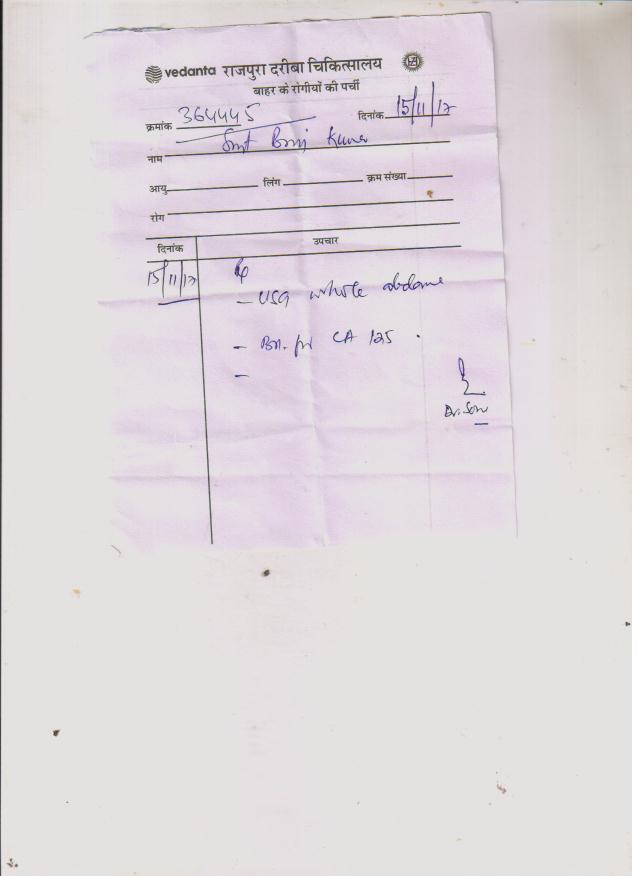 vedanta राजपुरा दरीबा चिकित्सालय
बाहर के रोगीयों की पर्ची
क्रमांक 364445 दिनांक 15/11/17
Smt Brij Kunwar
नाम
आयु लिंग क्रम संख्या
रोग
दिनांक उपचार
15/11/17
- USG whole abdomen
- for CA 125
-
Dr. Soni